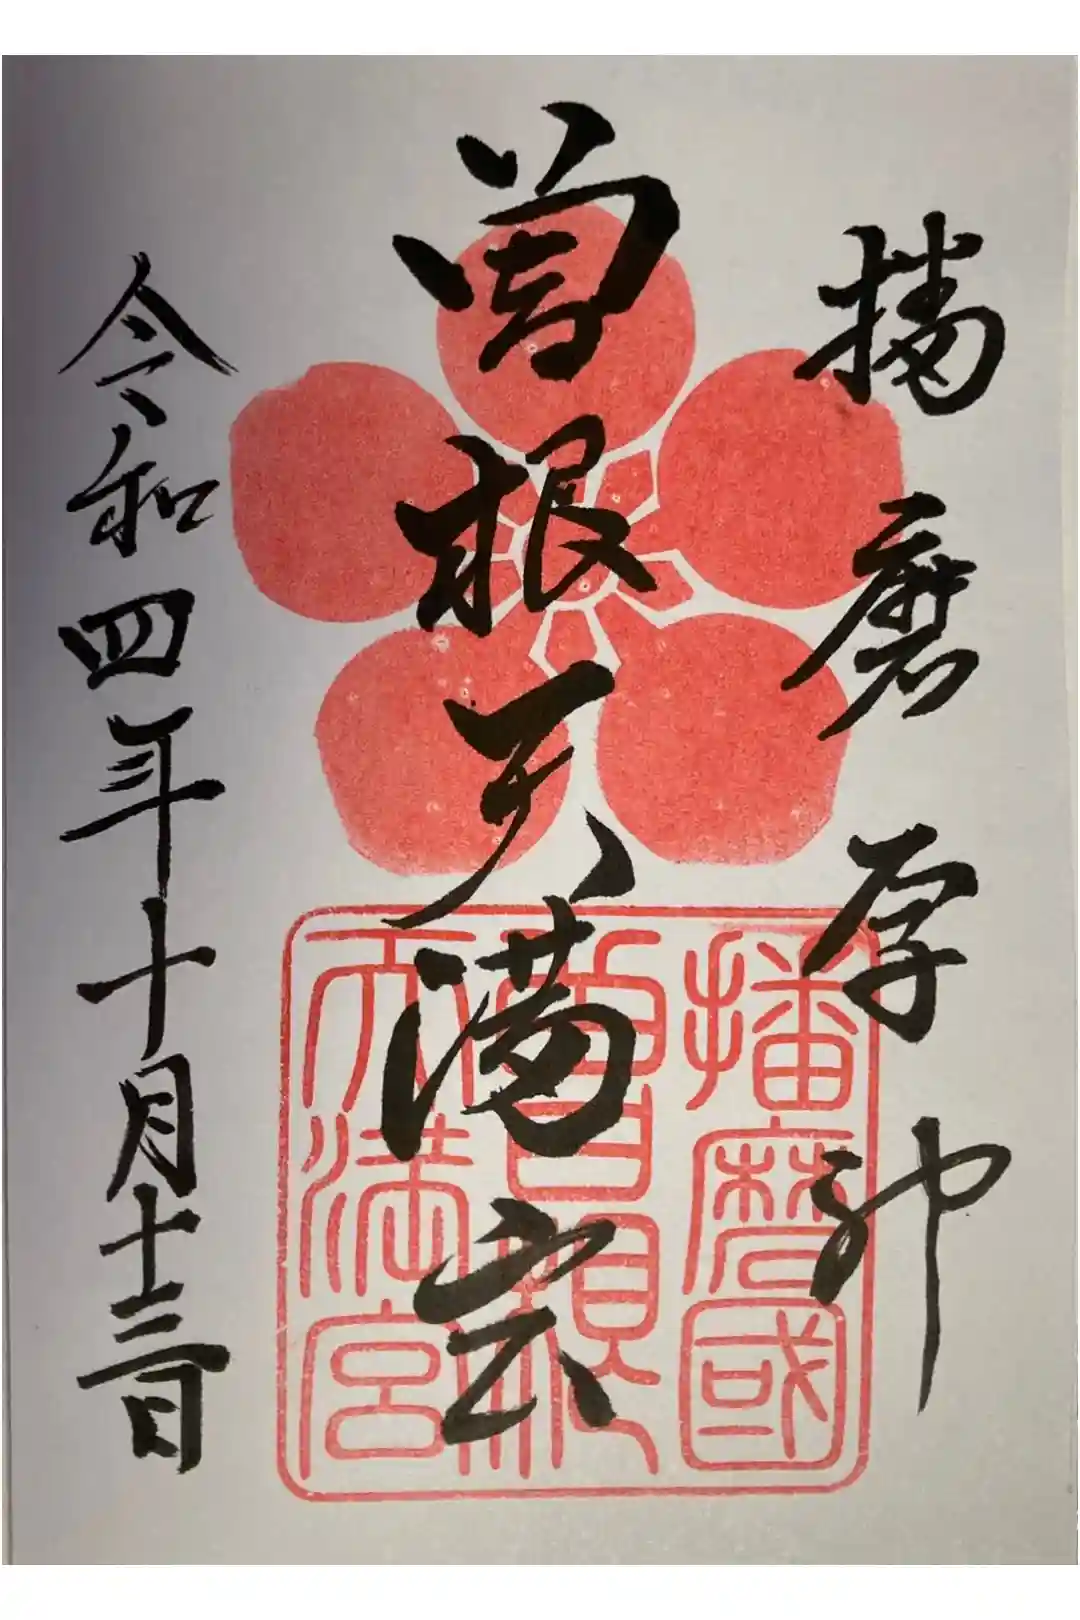 播磨厚神
曽根天満宮
令和四年十月十三日
播磨國
曾根
天満宮